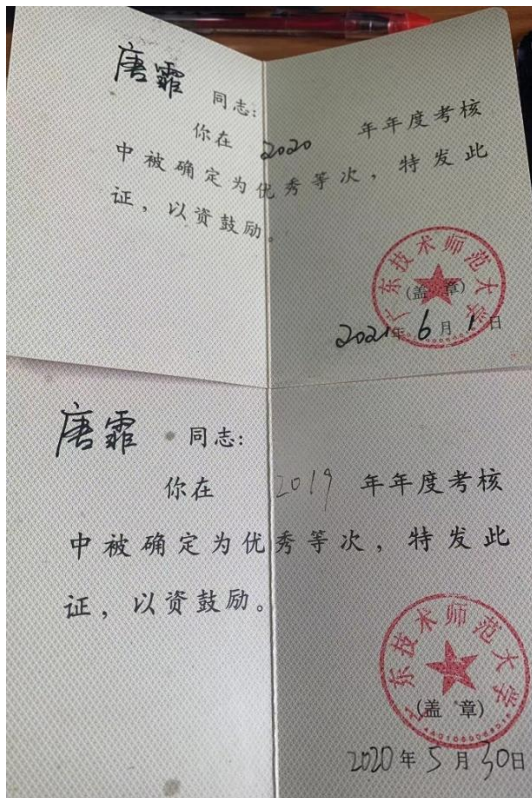 唐霏 同志:
你在 2020 年年度考核
中被确定为优秀等次，特发此
证，以资鼓励。
广东技术师范大学
(盖 章)
2021年 6 月 1 日
唐霏 同志:
你在 2019 年年度考核
中被确定为优秀等次，特发此
证，以资鼓励。
广东技术师范大学
(盖 章)
2020年 5 月 30日